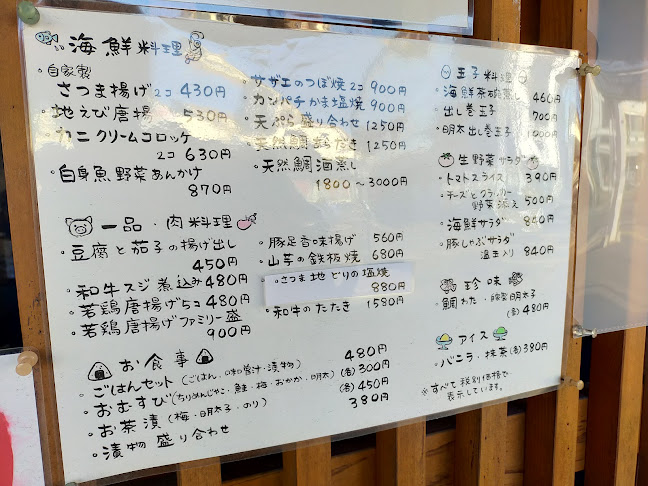 海鮮料理
・自家製
さつま揚げ2コ 430円
・地えび唐揚 530円
・カニクリームコロッケ
2コ 630円
・白身魚野菜あんかけ
870円
・サザエのつぼ焼2コ 900円
・カンパチかま塩焼 900円
・天ぷら盛り合わせ 1250円
・天然鯛 1250円
・天然鯛酒蒸し
1800〜3000円
一品・肉料理
・豆腐と茄子の揚げ出し
450円
・和牛スジ煮込み480円
・若鶏唐揚げ5コ480円
・若鶏唐揚げファミリー盛
900円
・豚足香味揚げ 560円
・山芋の鉄板焼 680円
・さつま地どりの塩焼
880円
・和牛のたたき 1580円
お食事
・ごはんセット(ごはん・味噌汁・漬物) 480円
・おむすび(ちりめんじゃこ・鮭・梅・おかか・明太)(各)300円
・お茶漬(梅・明太子・のり) (各)450円
・漬物盛り合わせ 380円
玉子料理
・海鮮茶碗蒸し 460円
・出し巻玉子 700円
・明太出し巻玉子 1000円
生野菜サラダ
・トマトスライス 390円
・チーズとクラッカー
野菜添え 500円
・海鮮サラダ 840円
・豚しゃぶサラダ
温玉入り 840円
珍味
・鯛わた・ 明太子
(各)480円
アイス
・バニラ・抹茶(各)380円
※すべて税別価格で
表示しています。